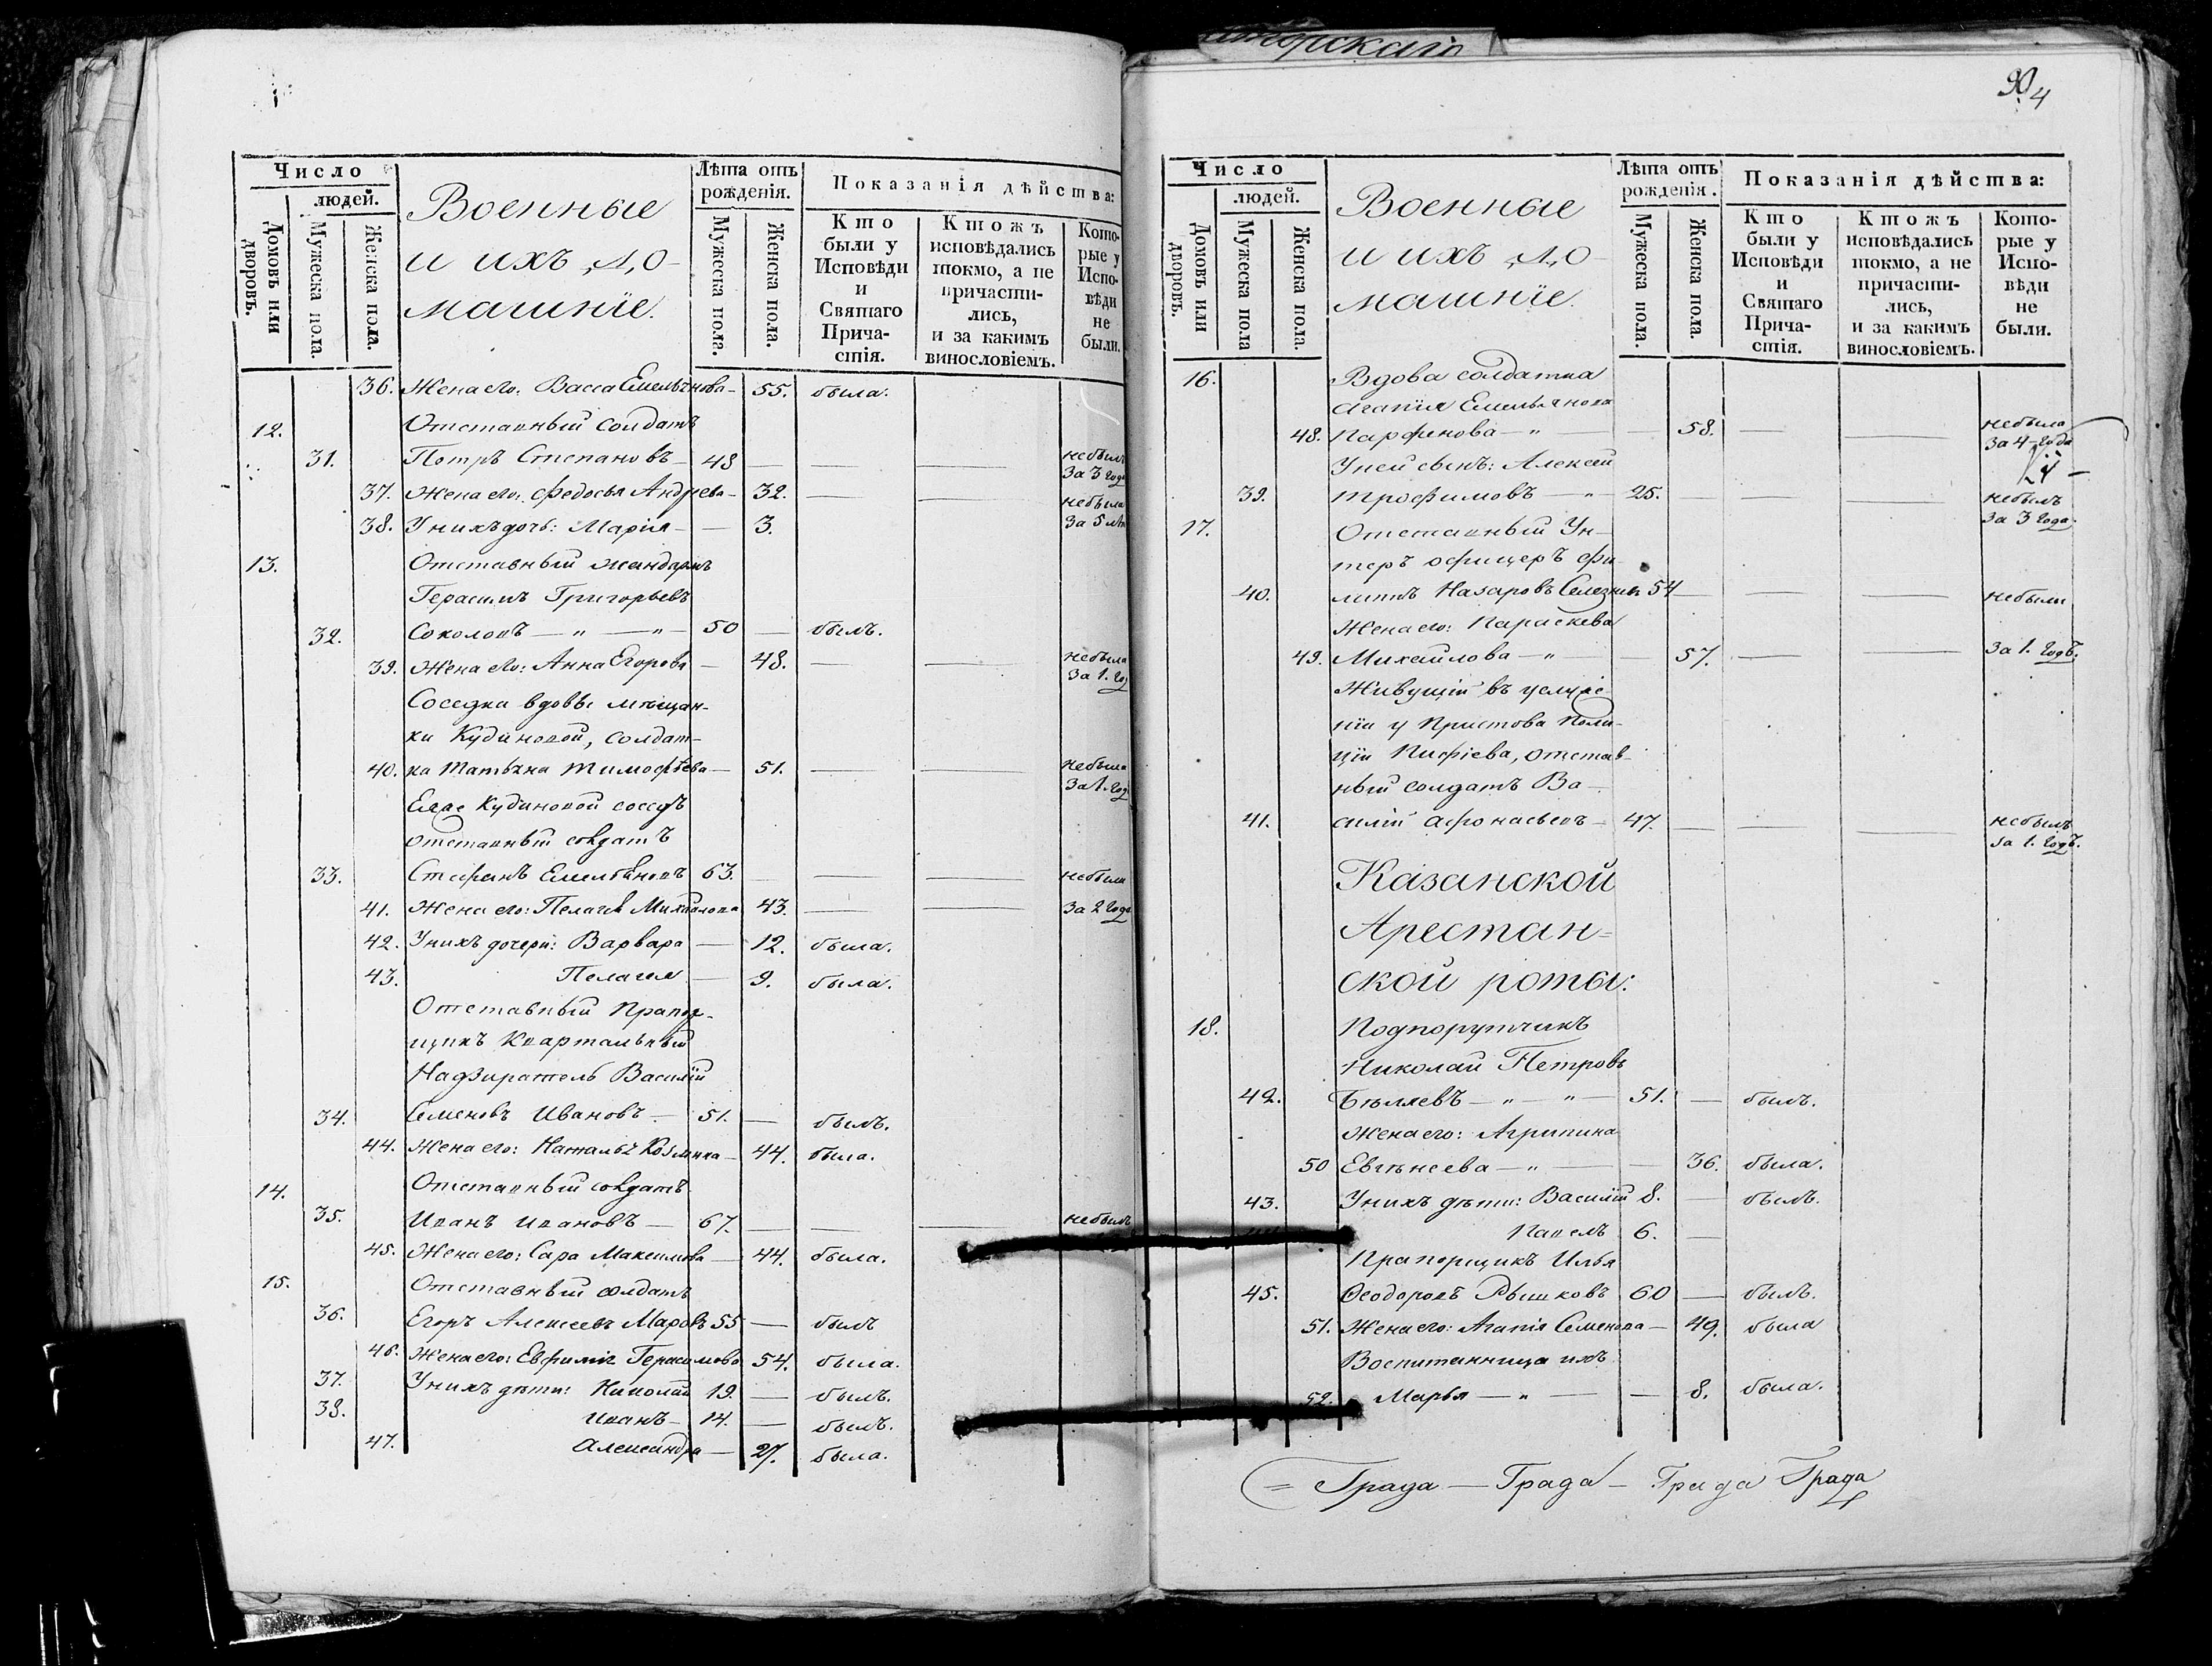 Число
людей.
Домовъ или дворовъ.
Мужеска пола.
Женска пола.
Военные
и ихъ до-
машніе.
Лѣта отъ
рожденія.
Мужеска пола.
Женска пола.
Показанія дѣйства:
Кто были у Исповѣди и Святаго Прича-стія.
Ктожъ исповѣдались токмо, а не причасти-лись, и за какимъ винословіемъ.
Кото-рые у Испо-вѣди не были.
36. Жена его: Васса Емельянова — 55. была.
12. Отставный солдатъ
31. Петръ Степановъ — 48 — — — небылъ за 3 года
37. Жена его: Федосья Андрева — 32. — — небыла за 5
38. У нихъ дочь: Марія — — 3.
13. Отставный жандармъ
Герасимъ Григорьевъ
32. Соколовъ — „ — „ — 50 — былъ.
39. Жена его: Анна Егорова — 48. — — небыла за 1. год
Соседка вдовы мѣщан-
ки Кудиновой, солдат-
40. ка Татьяна Тимофѣева — 51. — — небыла за 1. год
Ея же Кудиновой соседъ
отставный солдатъ
33. Стефанъ Емельяновъ 63. — — — небыли
41. Жена его: Пелагея Михайлова 43. — — за 2 года
42. У нихъ дочери: Варвара — 12. была.
43. Пелагея — 9. была.
Отставный Прапор-
щикъ Квартальный
Надзиратель Василій
34. Семеновъ Ивановъ — 51. — былъ.
44. Жена его: Наталья Козмина — 44. была.
14. Отставный солдатъ
35. Иванъ Ивановъ — 67. — — — небылъ
45. Жена его: Сара Максимова — 44. была.
15. Отставный солдатъ
36. Егоръ Алексеевъ Маровъ 55 — былъ
46. Жена его: Евфимія Герасимова 54. была.
37. У нихъ дѣти: Николай 19. — былъ.
38. Иванъ — 14. — былъ.
47. Александра — 27. была.
аторскаго
90
4
Число
людей.
Домовъ или дворовъ.
Мужеска пола
Женска пола.
Военные
и ихъ до-
машніе.
Лѣта отъ
рожденія.
Мужеска пола.
Женска пола.
Показанія дѣйства:
Кто были у Исповѣди и Святаго Прича-стія.
Ктожъ исповѣдались токмо, а не причасти-лись, и за какимъ винословіемъ.
Кото-рые у Испо-вѣди не были.
16. Вдова солдатка
Агапія Емельянова
48. Парфенова — „ — — 58. — — небыла за 4 года
4
У ней сынъ: Алексей
39. Трофимовъ — „ — 25. — — — небылъ за 3 года.
17. Отставный Ун-
теръ офицеръ Фи-
40. липпъ Назаровъ Селезневъ 54 — — — небыли
Жена его: Параскева
49. Михайлова — „ — 57. — — за 1. годъ.
Живущій въ услуже-
ніи у Пристова Поли-
ціи Пифіева, отстав-
ный солдатъ Ва-
41. силій Афонасьевъ — 47. — — — небылъ за 1. годъ.
Казанской
Арестан-
ской роты:
18. Подпорутчикъ
Николай Петровъ
42. Бѣляевъ — „ — „ — 51. — былъ.
Жена его: Агрипина
50 Евгѣнеева — „ — — 36. была.
43. У нихъ дѣти: Василій 8. — былъ.
Павелъ 6. —
Прапорщикъ Илья
45. Ѳеодоровъ Рышковъ 60 — былъ.
51. Жена его: Агапія Семенова — 49. была
Воспитанница ихъ
52. Марья — „ — — 8. была.
= Града — Града — Града Града